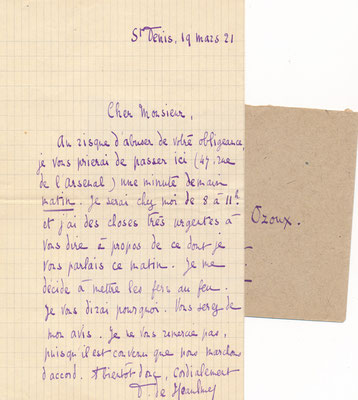 St Denis, 19 mars 21
Cher Monsieur,
Au risque d'abuser de votre obligeance,
je vous prierai de passer ici (47, rue
de l'Arsenal) une minute demain
matin. Je serai chez moi de 8 à 11h.
et j'ai des choses très urgentes à
vous dire à propos de ce dont je
vous parlais ce matin. Je me
décide à mettre les fers au feu.
Je vous dirai pourquoi. Vous serez de
mon avis. Je ne vous remercie pas,
puisqu'il est convenu que nous marchons
d'accord. A bientôt donc, cordialement
de
Ozoux.